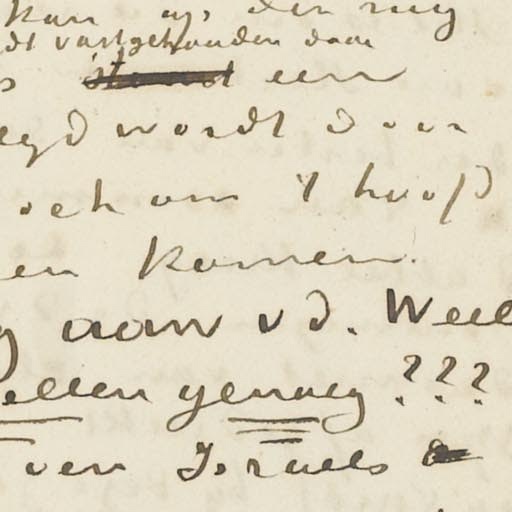 kan op den rug
dt vastgehouden daar
s een
egd wordt door
och om 't hoofd
en komen.
g aan v d. Weel
ellen genoeg ???
ven Israels